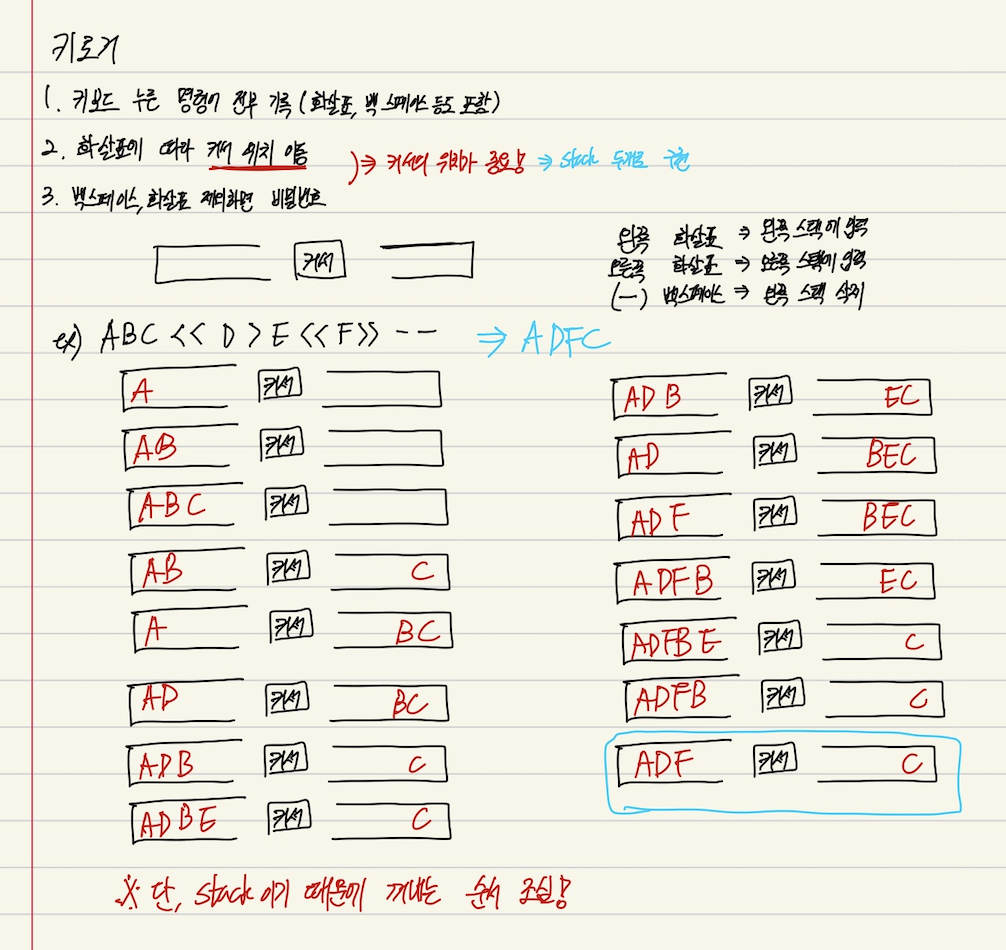 키로거
1. 키보드 누른 명령어 전부 기록 (화살표, 백스페이스 등도 포함)
2. 화살표에 따라 커서 위치 이동
)⇒ 커서의 위치가 중요! ⇒ stack 두개로 구현
3. 백스페이스, 화살표 제외하면 비밀번호
커서
왼쪽 화살표 ⇒ 왼쪽 스택에 입력
오른쪽 화살표 ⇒ 오른쪽 스택에 입력
(-) 백스페이스 ⇒ 왼쪽 스택 삭제
ex) ABC << D > E << F >> - - ⇒ ADFC
A 커서
AB 커서
ABC 커서
AB 커서 C
A 커서 BC
AD 커서 BC
ADB 커서 C
ADBE 커서 C
ADB 커서 EC
AD 커서 BEC
ADF 커서 BEC
ADFB 커서 EC
ADFBE 커서 C
ADFB 커서 C
ADF 커서 C
※ 단, stack이기 때문에 꺼내는 순서 조심!